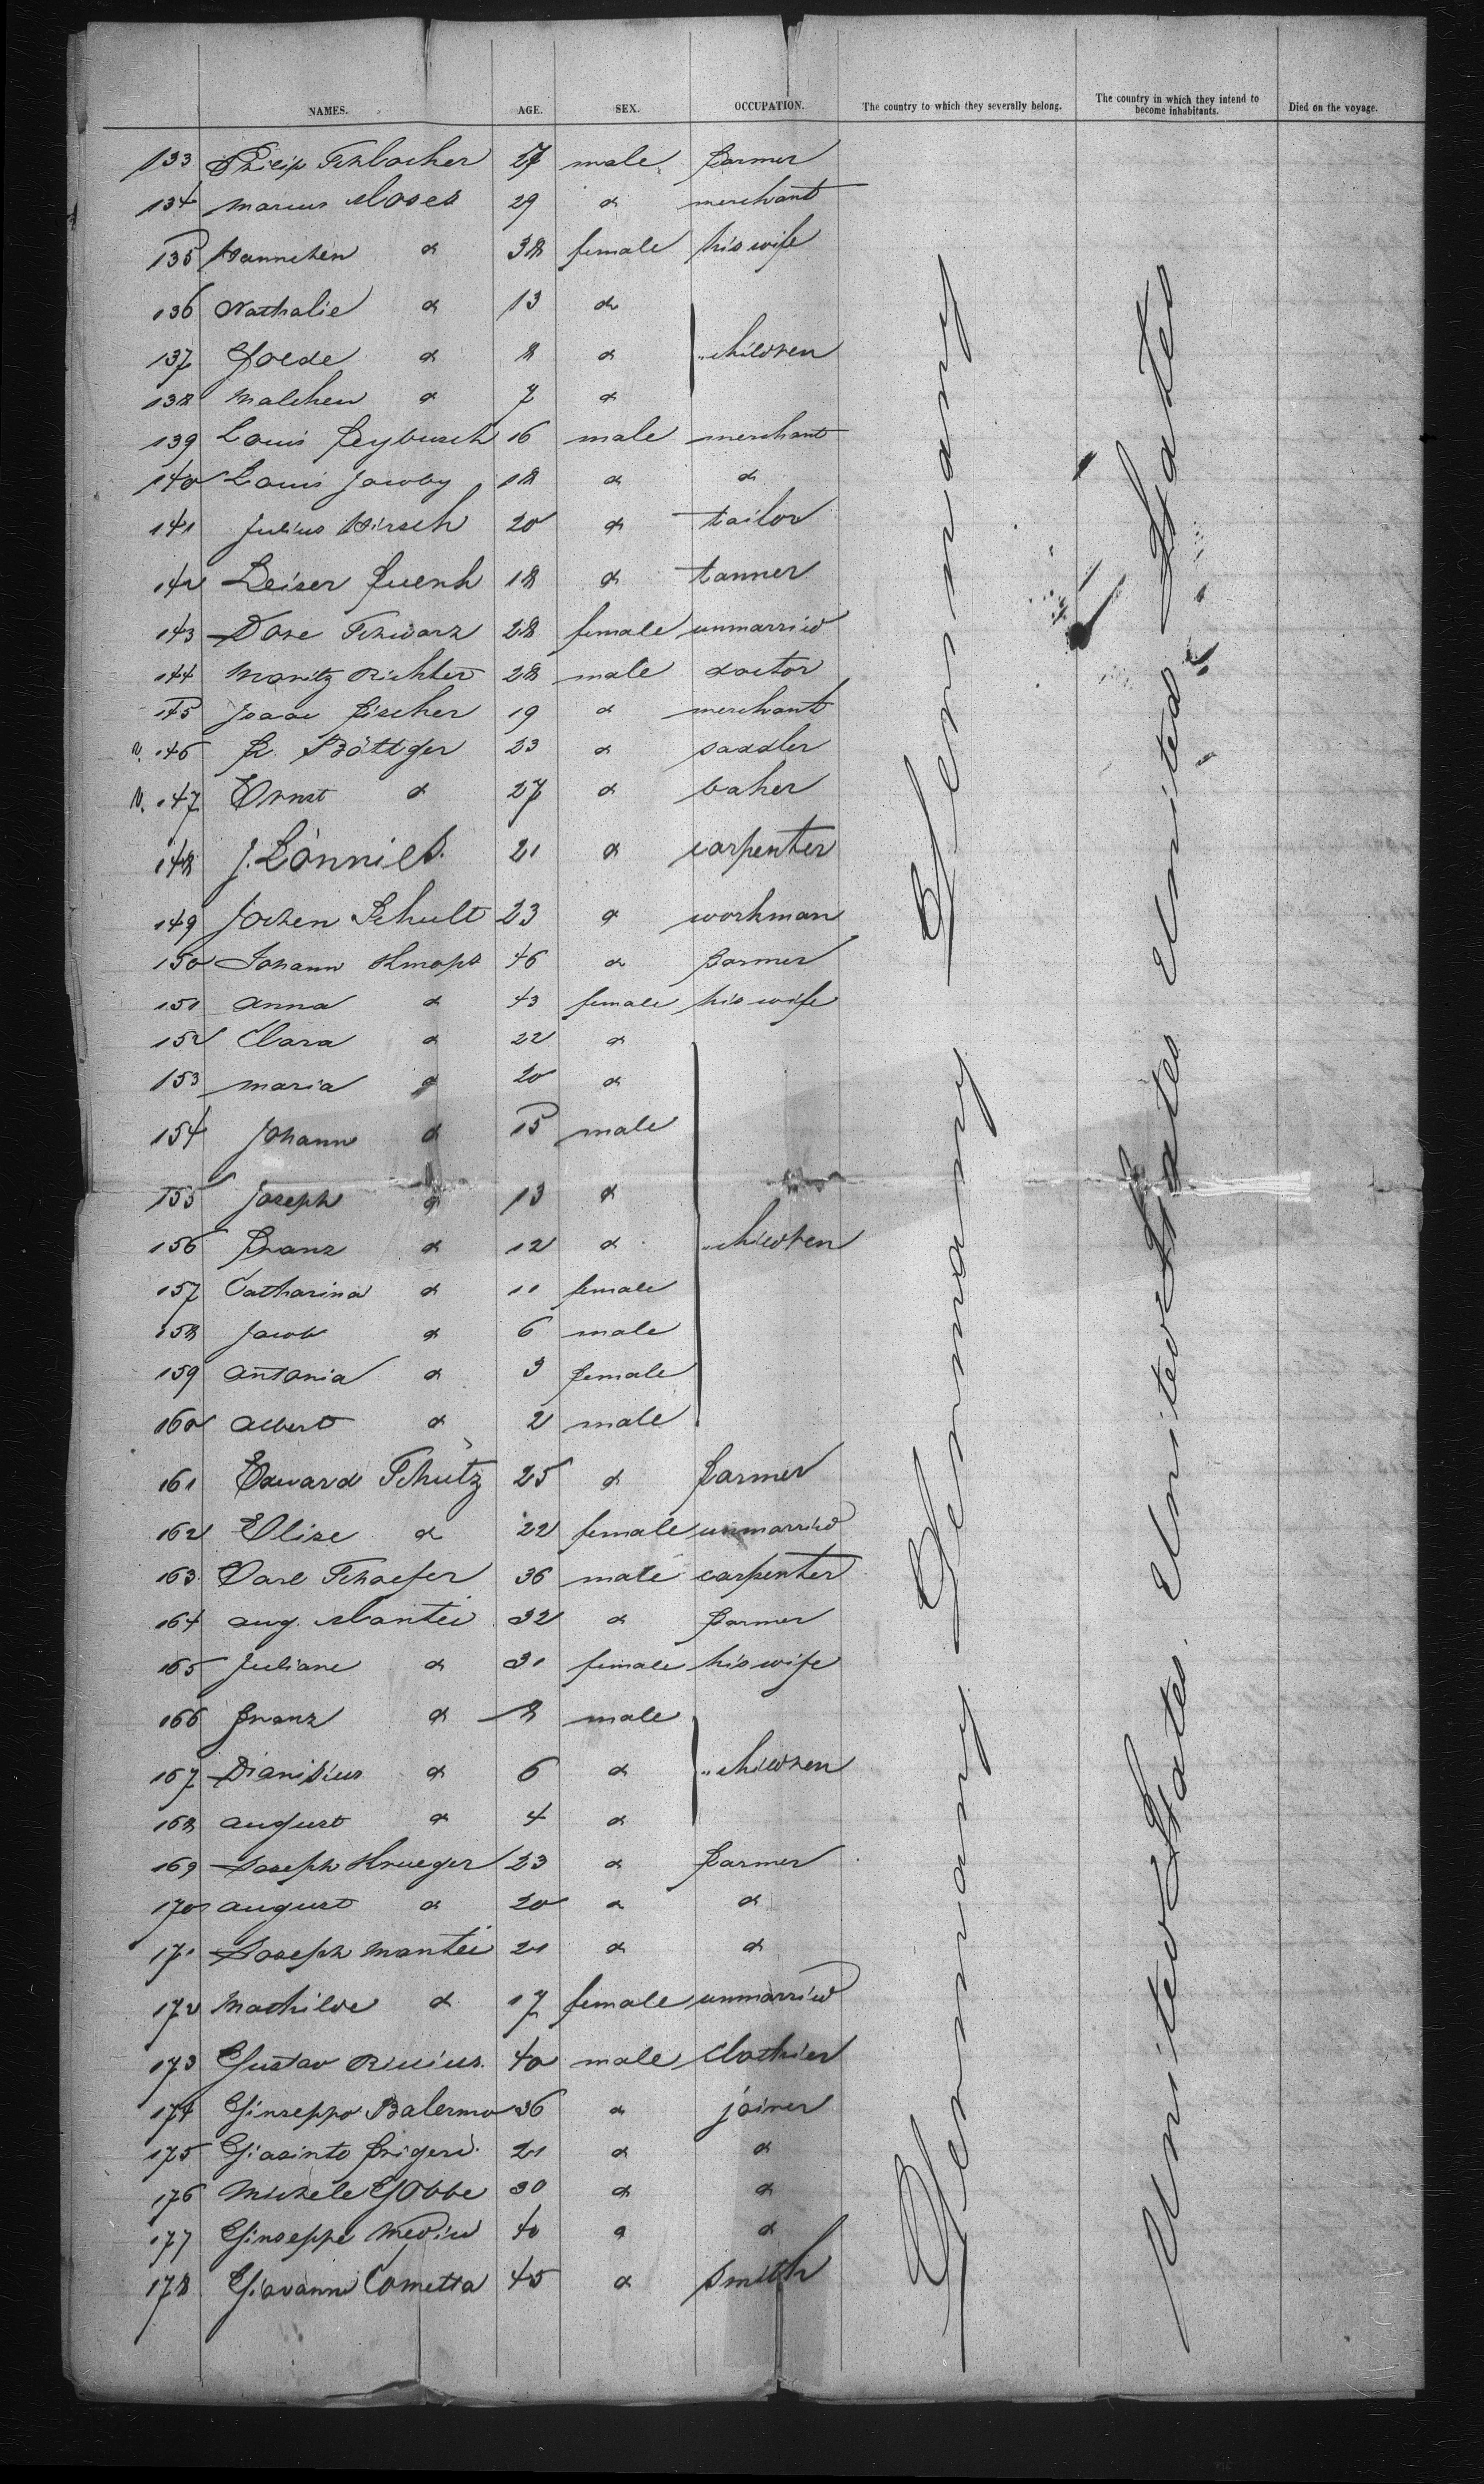 NAMES. AGE. SEX. OCCUPATION. The country to which they severally belong. The country in which they intend to become inhabitants. Died on the voyage.
133 Philip 27 male farmer
134 Marcus Moses 29 d merchant
135 Hannchen d 38 female his wife
136 Nathalie d 13 d
137 Joede d 8 d children
138 Malchen d 7 d
139 Louis Leybusch 16 male merchant
140 Louis Jacoby 18 d d
141 Julius Hirsch 20 d tailor
142 Leiser 18 d tanner
143 Dore Schwarz 28 female unmarried
144 Moritz Richter 28 male doctor
145 Isaac Fischer 19 d merchant
146 Fr. Böttger 23 d saddler
147 Ernst d 27 d baker
148 J. Lönnies. 21 d carpenter
149 Jochen Schult 23 d workman
150 Johann Knops 46 d farmer
151 Anna d 43 female his wife
152 Clara d 22 d
153 Maria d 20 d
154 Johann d 15 male
155 Joseph d 13 d
156 Franz d 12 d children
157 Catharina d 11 female
158 Jacob d 6 male
159 Antonia d 3 female
160 Albert d 2 male
161 Edward Schütz 25 d farmer
162 Elise d 22 female unmarried
163 Carl Schaefer 36 male carpenter
164 Aug. Mantei 32 d farmer
165 Juliane d 31 female his wife
166 Franz d 8 male
167 Dianisius d 6 d children
168 August d 4 d
169 Joseph Krueger 23 d farmer
170 August d 20 d d
171 Joseph Mantei 21 d d
172 Mathilde d 17 female unmarried
173 Gustav 40 male Clothier
174 Ginseppo Balermo 36 d joiner
175 Giasinto Frigeri 21 d d
176 Michele Gobbe 30 d d
177 Ginseppe 40 d d
178 Giovanni Cometta 45 d smith
Germany Germany Germany
United States United States United States